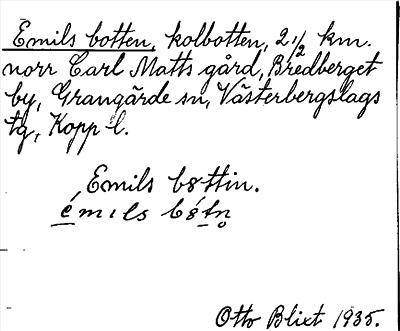 Emils botten, kolbotten, 2 1/2 km.
norr Carl Matts gård, Bredberget
by, Grangärde sn, Västerbergslags
tg, Kopp l.
Emils bottin.
é m ı l s b
Otto Blixt 1935.